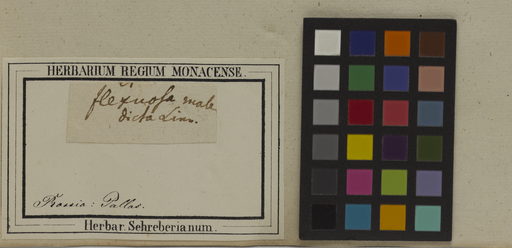 HERBARIUM REGIUM MONACENSE.
flexuosa male
dicta Linn.
Rossia: Pallas.
Herbar. Schreberianum.